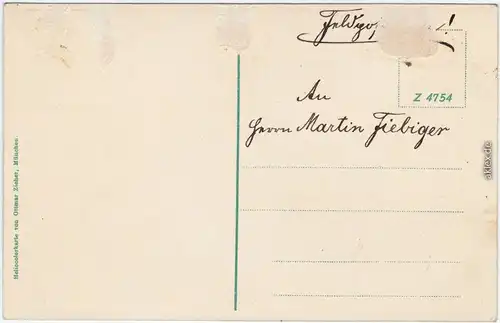 Feldpost!
Z 4754
An
Herrn Martin Fiebiger
Heliocolorkarte von Ottmar Zieher, München.
akpool.de